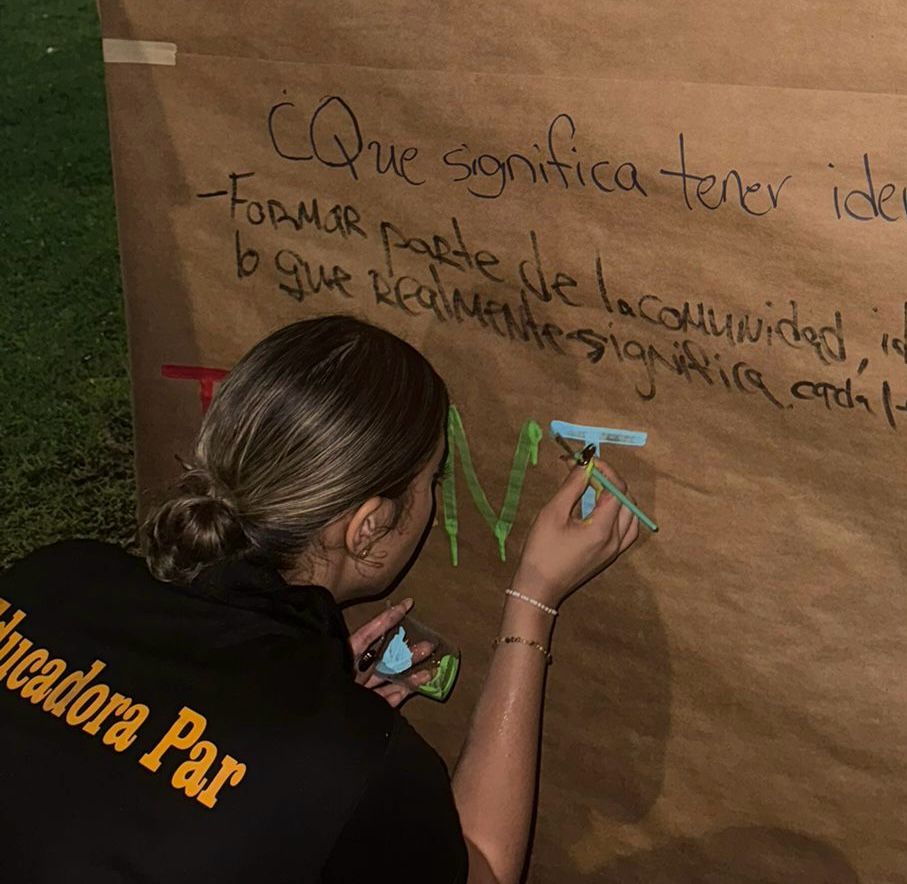 ¿Que significa tener iden
-FORMAR parte de la comunidad, id
lo que realmente significa cada l
T NT
Educadora Par